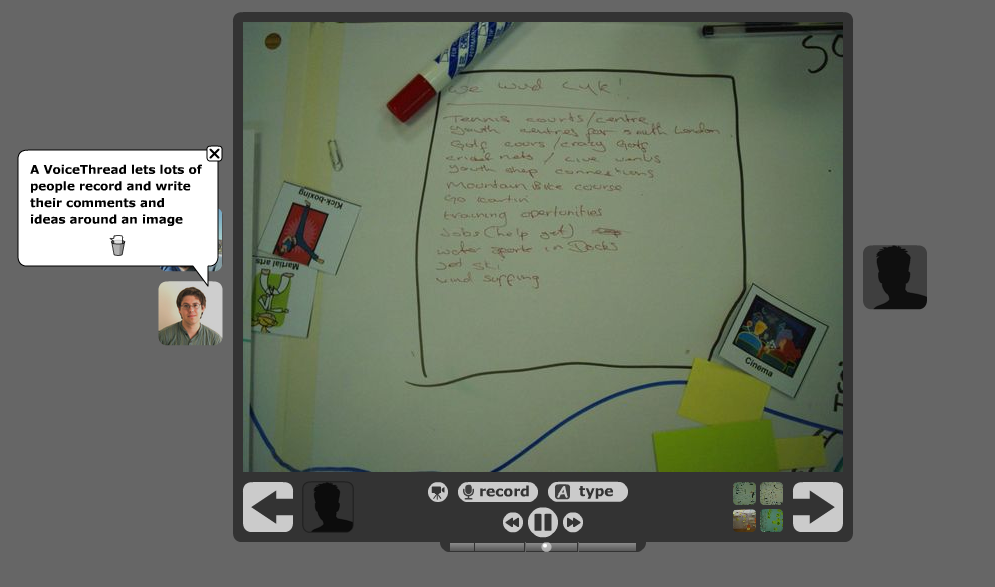 A VoiceThread lets lots of
people record and write
their comments and
ideas around an image
we wud Lyk!
Tennis courts/centre
youth centres for south London
Golf cours/crazy Golf
cricket nets /
youth shop connexions
Mountain Bike course
Go kartin
training opertunities
Jobs (help get)
water sports in Docks
Jet Ski
wind surfing
Kick-boxing
Martial arts
Cinema
record
A type